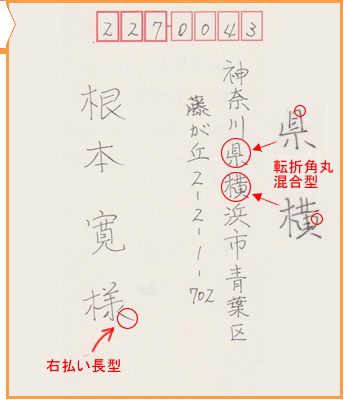 227-0043
神奈川県横浜市青葉区
藤が丘2-2-1-702
根本寛様
県
横
転折角丸
混合型
右払い長型